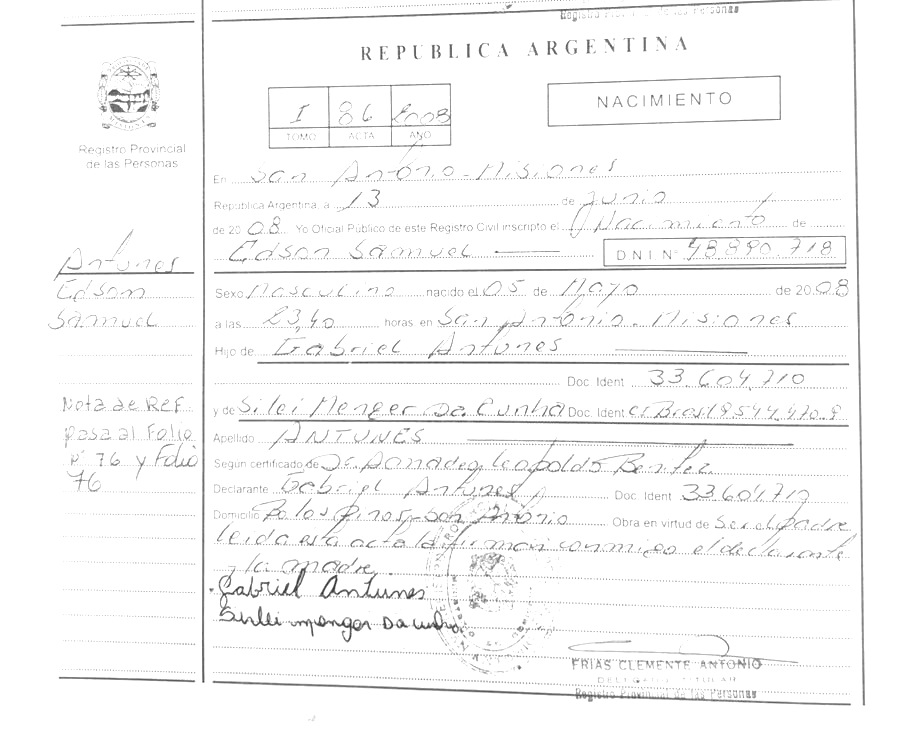 Registro Provincial de las Personas
REPUBLICA ARGENTINA
I 86 2008
TOMO ACTA AÑO
NACIMIENTO
Registro Provincial
de las Personas
En San Antonio - Misiones
Republica Argentina a 13 de Junio
de 20 08 Yo Oficial Público de este Registro Civil inscripto el Nacimiento de
Edson Samuel DNI Nº 48.890.718
Antunes
Edson
Samuel
Sexo Masculino nacido el 05 de Mayo de 20 08
a las 23,40 horas en San Antonio - Misiones
Hijo de Gabriel Antunes
Doc. Ident 33.604.710
y de Silei Menger Da Cunha Doc. Ident CI Brasil
Apellido ANTUNES
Segun certificado de Leopoldo Benitez
Declarante Gabriel Antunes Doc. Ident
Domicilio San Antonio Obra en virtud de padre
leida esta acta la firman conmigo el declarante
y la madre
Nota de REF
pasa al Folio
nº 76 y Folio
76
Gabriel Antunes
Sirlei menger Da cunha
FRIAS CLEMENTE ANTONIO
DELEGADO TITULAR
Registro Provincial de las Personas